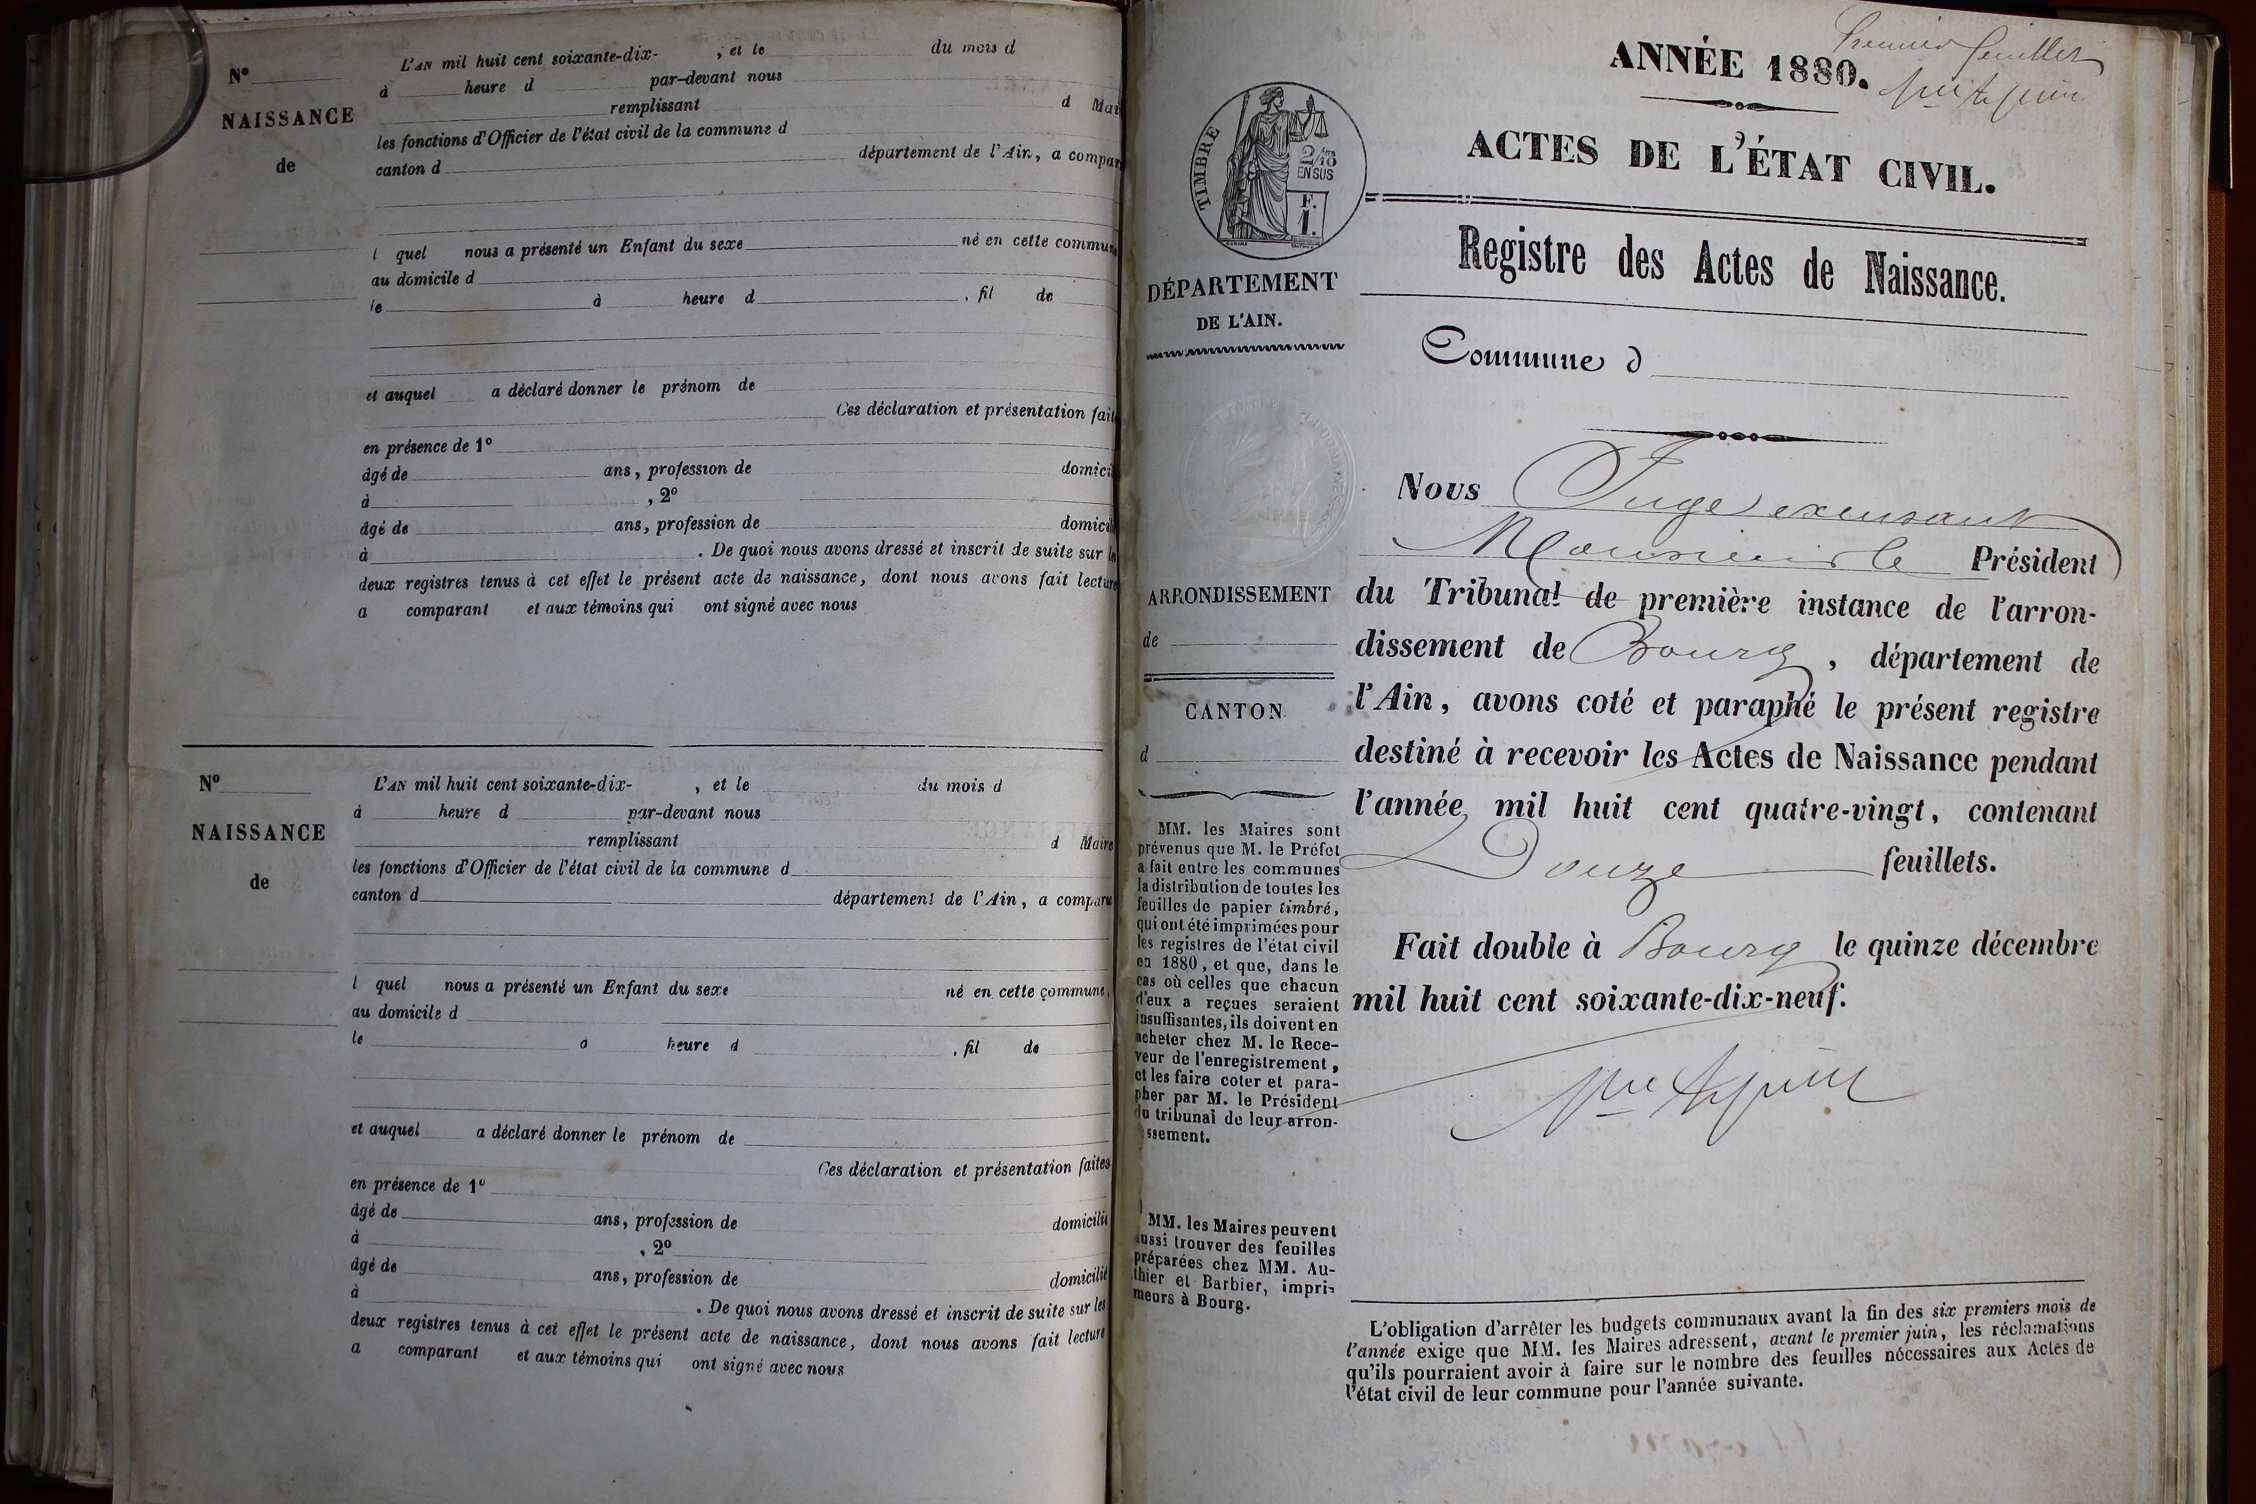 N°
NAISSANCE
de
L'AN mil huit cent soixante-dix- , et le du mois d
à heure d par-devant nous
remplissant d Mai
les fonctions d'Officier de l'état civil de la commune d
canton d département de l'Ain, a compar
l quel nous a présenté un Enfant du sexe né en cette commun
au domicile d
le à heure d , fil de
et auquel a déclaré donner le prénom de
Ces déclaration et présentation fait
en présence de 1°
âgé de ans, profession de domici
à , 2°
âgé de ans, profession de domicil
à . De quoi nous avons dressé et inscrit de suite sur le
deux registres tenus à cet effet le présent acte de naissance, dont nous avons fait lecture
a comparant et aux témoins qui ont signé avec nous
N°
NAISSANCE
de
L'AN mil huit cent soixante-dix- , et le du mois d
à heure d par-devant nous
remplissant d Maire
les fonctions d'Officier de l'état civil de la commune d
canton d département de l'Ain, a comparu
l quel nous a présenté un Enfant du sexe né en cette commune,
au domicile d
le à heure d , fil de
et auquel a déclaré donner le prénom de
Ces déclaration et présentation faites
en présence de 1°
âgé de ans, profession de domicilié
à , 2°
âgé de ans, profession de domicilié
à . De quoi nous avons dressé et inscrit de suite sur les
deux registres tenus à cet effet le présent acte de naissance, dont nous avons fait lecture
a comparant et aux témoins qui ont signé avec nous
Premier feuillet
ANNÉE 1880.
ACTES DE L'ÉTAT CIVIL.
TIMBRE
2/10
EN SUS
F.
1.
Registre des Actes de Naissance.
DÉPARTEMENT
DE L'AIN.
Commune d
Nous Juge excusant
Monsieur le Président
du Tribunal de première instance de l'arron-
dissement de Bourg, département de
l'Ain, avons coté et paraphé le présent registre
destiné à recevoir les Actes de Naissance pendant
l'année mil huit cent quatre-vingt, contenant
Douze feuillets.
Fait double à Bourg le quinze décembre
mil huit cent soixante-dix-neuf.
ARRONDISSEMENT
de
CANTON
d
MM. les Maires sont
prévenus que M. le Préfet
a fait entre les communes
la distribution de toutes les
feuilles de papier timbré,
qui ont été imprimées pour
les registres de l'état civil
en 1880, et que, dans le
cas où celles que chacun
d'eux a reçues seraient
insuffisantes, ils doivent en
acheter chez M. le Rece-
veur de l'enregistrement,
et les faire coter et para-
pher par M. le Président
du tribunal de leur arron-
ssement.
MM. les Maires peuvent
aussi trouver des feuilles
préparées chez MM. Au-
thier et Barbier, impri-
meurs à Bourg.
L'obligation d'arrêter les budgets communaux avant la fin des six premiers mois de
l'année exige que MM. les Maires adressent, avant le premier juin, les réclamations
qu'ils pourraient avoir à faire sur le nombre des feuilles nécessaires aux Actes de
l'état civil de leur commune pour l'année suivante.